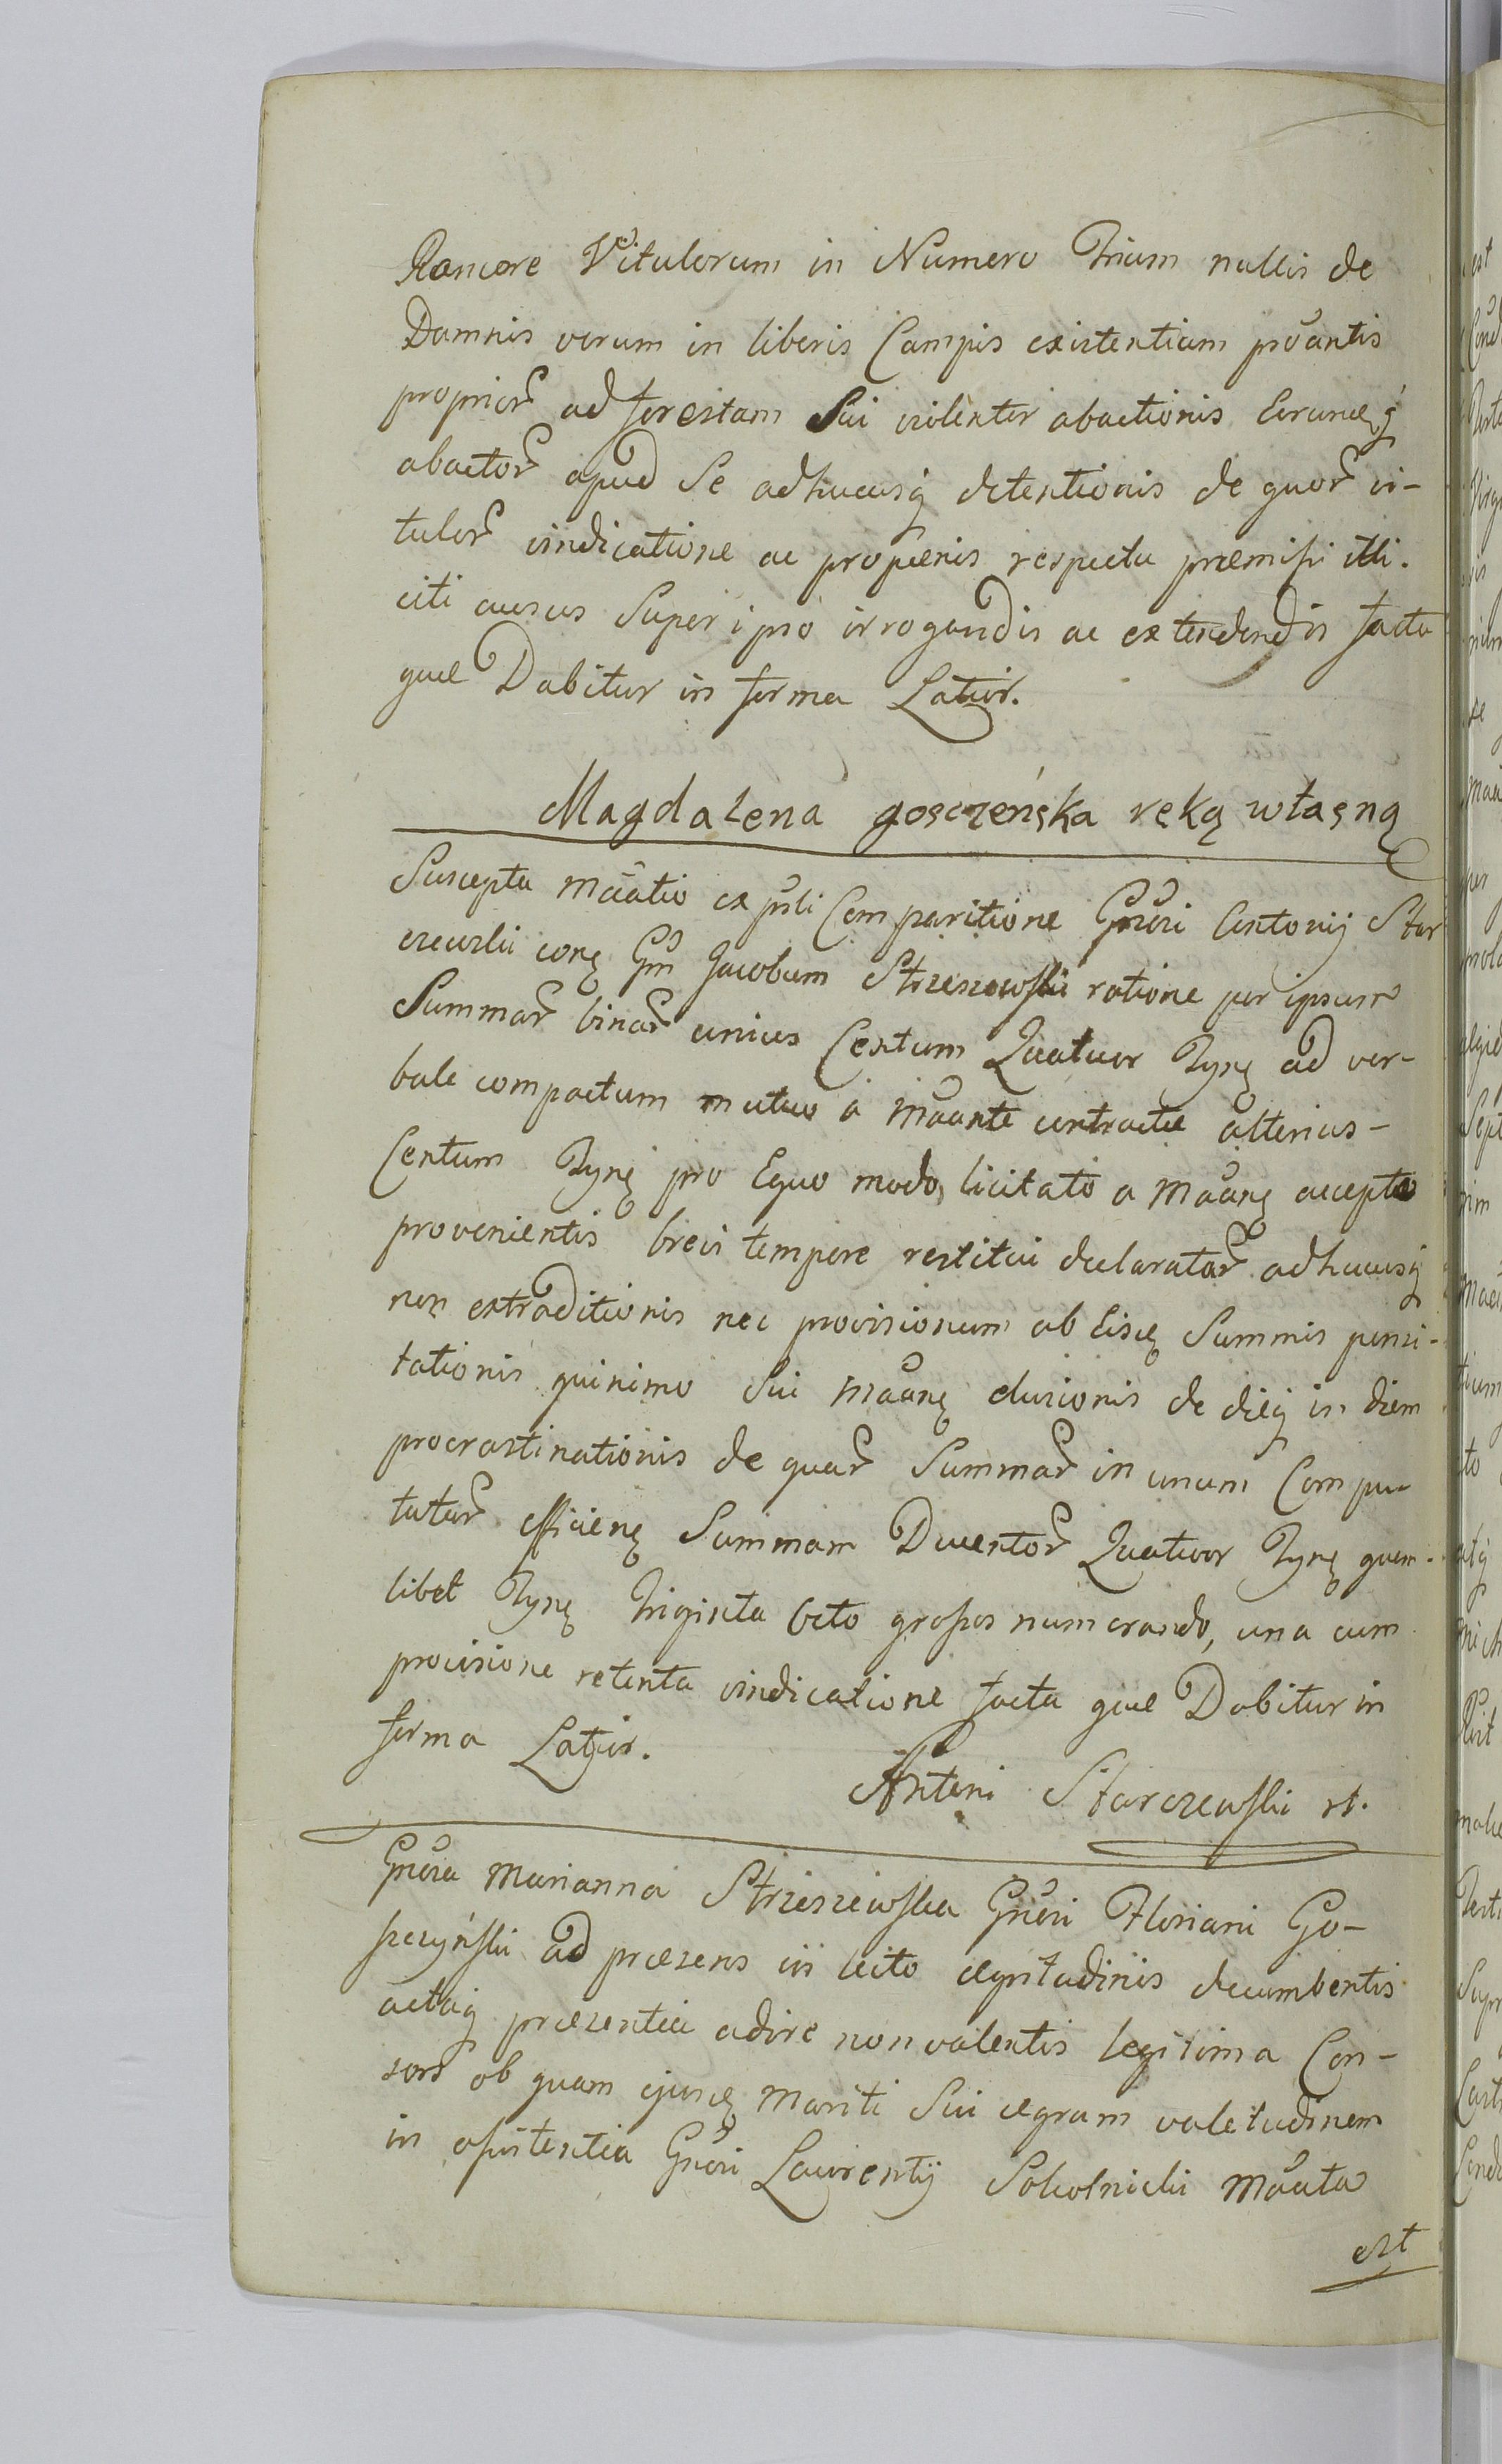 Rancore Vitulorum in Numero Trium nullis de
Damnis verum in liberis Campis existentium prõantis
proprior̃ ad forestam Sui violenter abactionis Earumq̨ꝫ
abactor̃ apud Se adhucusq̨ detentionis de quor̃ vi-
tulor̃ vindicatione ac pro pœnis respectu præmissi illi-
citi ausus Super ipso irrogandis ac extendendis facta
quæ Dabitur in forma Latiori.
Magdalena gosczeńska ręką własną
Suscepta mãtio ex pñli Comparitione Gñosi Antonij Star
czewski conę Gñ Jacobum Strzeszewski ratione per ipsum
Summar̃ binar̃ unius Centum Quatuor Tynę ad ver-
bale compactum mutuo à mãnte contractæ alterius-
Centum Tynę pro Equo modo licitato a mãnę accepto
provenientis brevi tempore restitui declaratar̃ adhucusq̨
non extraditionis nec provisionum ab Eisdę Summis pensi-
tationis quinimo Sui mãnę elusionis de dieq̨ in diem
procrastinationis de quar̃ Summar̃ in unum Compu-
tatar̃ efficienę Summam Ducentor̃ Quatuor Tynę quem-
libet Tynę Triginta octo grossos numerando, una cum
provisione retenta vindicatione facta quæ Dabitur in
forma Latiori.
Antoni Starczewski rt.
Gñosa Marianna Strzeszewska Gñosi Floriani Go-
szczyński ad præsens in lecto ægritudinis decumbentis
actaq̨ præsentia adire non valentis legitima Con-
sors ob quam ejusdę mariti Sui ægram valetudinem
in assistentia Gñosi Laurentij Sokolnicki mãta
est